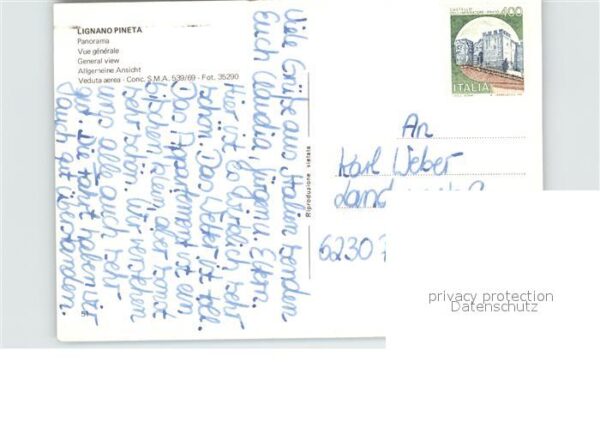 LIGNANO PINETA
Panorama
Vue générale
General view
Allgemeine Ansicht
Veduta aerea - Conc. S.M.A. 539/69 - Fot. 35290
Viele Grüße aus Italien senden
Euch Claudia, Jürgen u. Eltern.
Hier ist es wirklich sehr
schön. Das Wetter ist toll.
Das Appartement ist ein
bißchen klein aber sonst
sehr schön. Wir verstehen
uns alle auch sehr
gut. Die Fahrt haben wir
auch gut überstanden.
Riproduzione vietata
51
400
ITALIA
An
Karl Weber
6230
privacy protection
Datenschutz